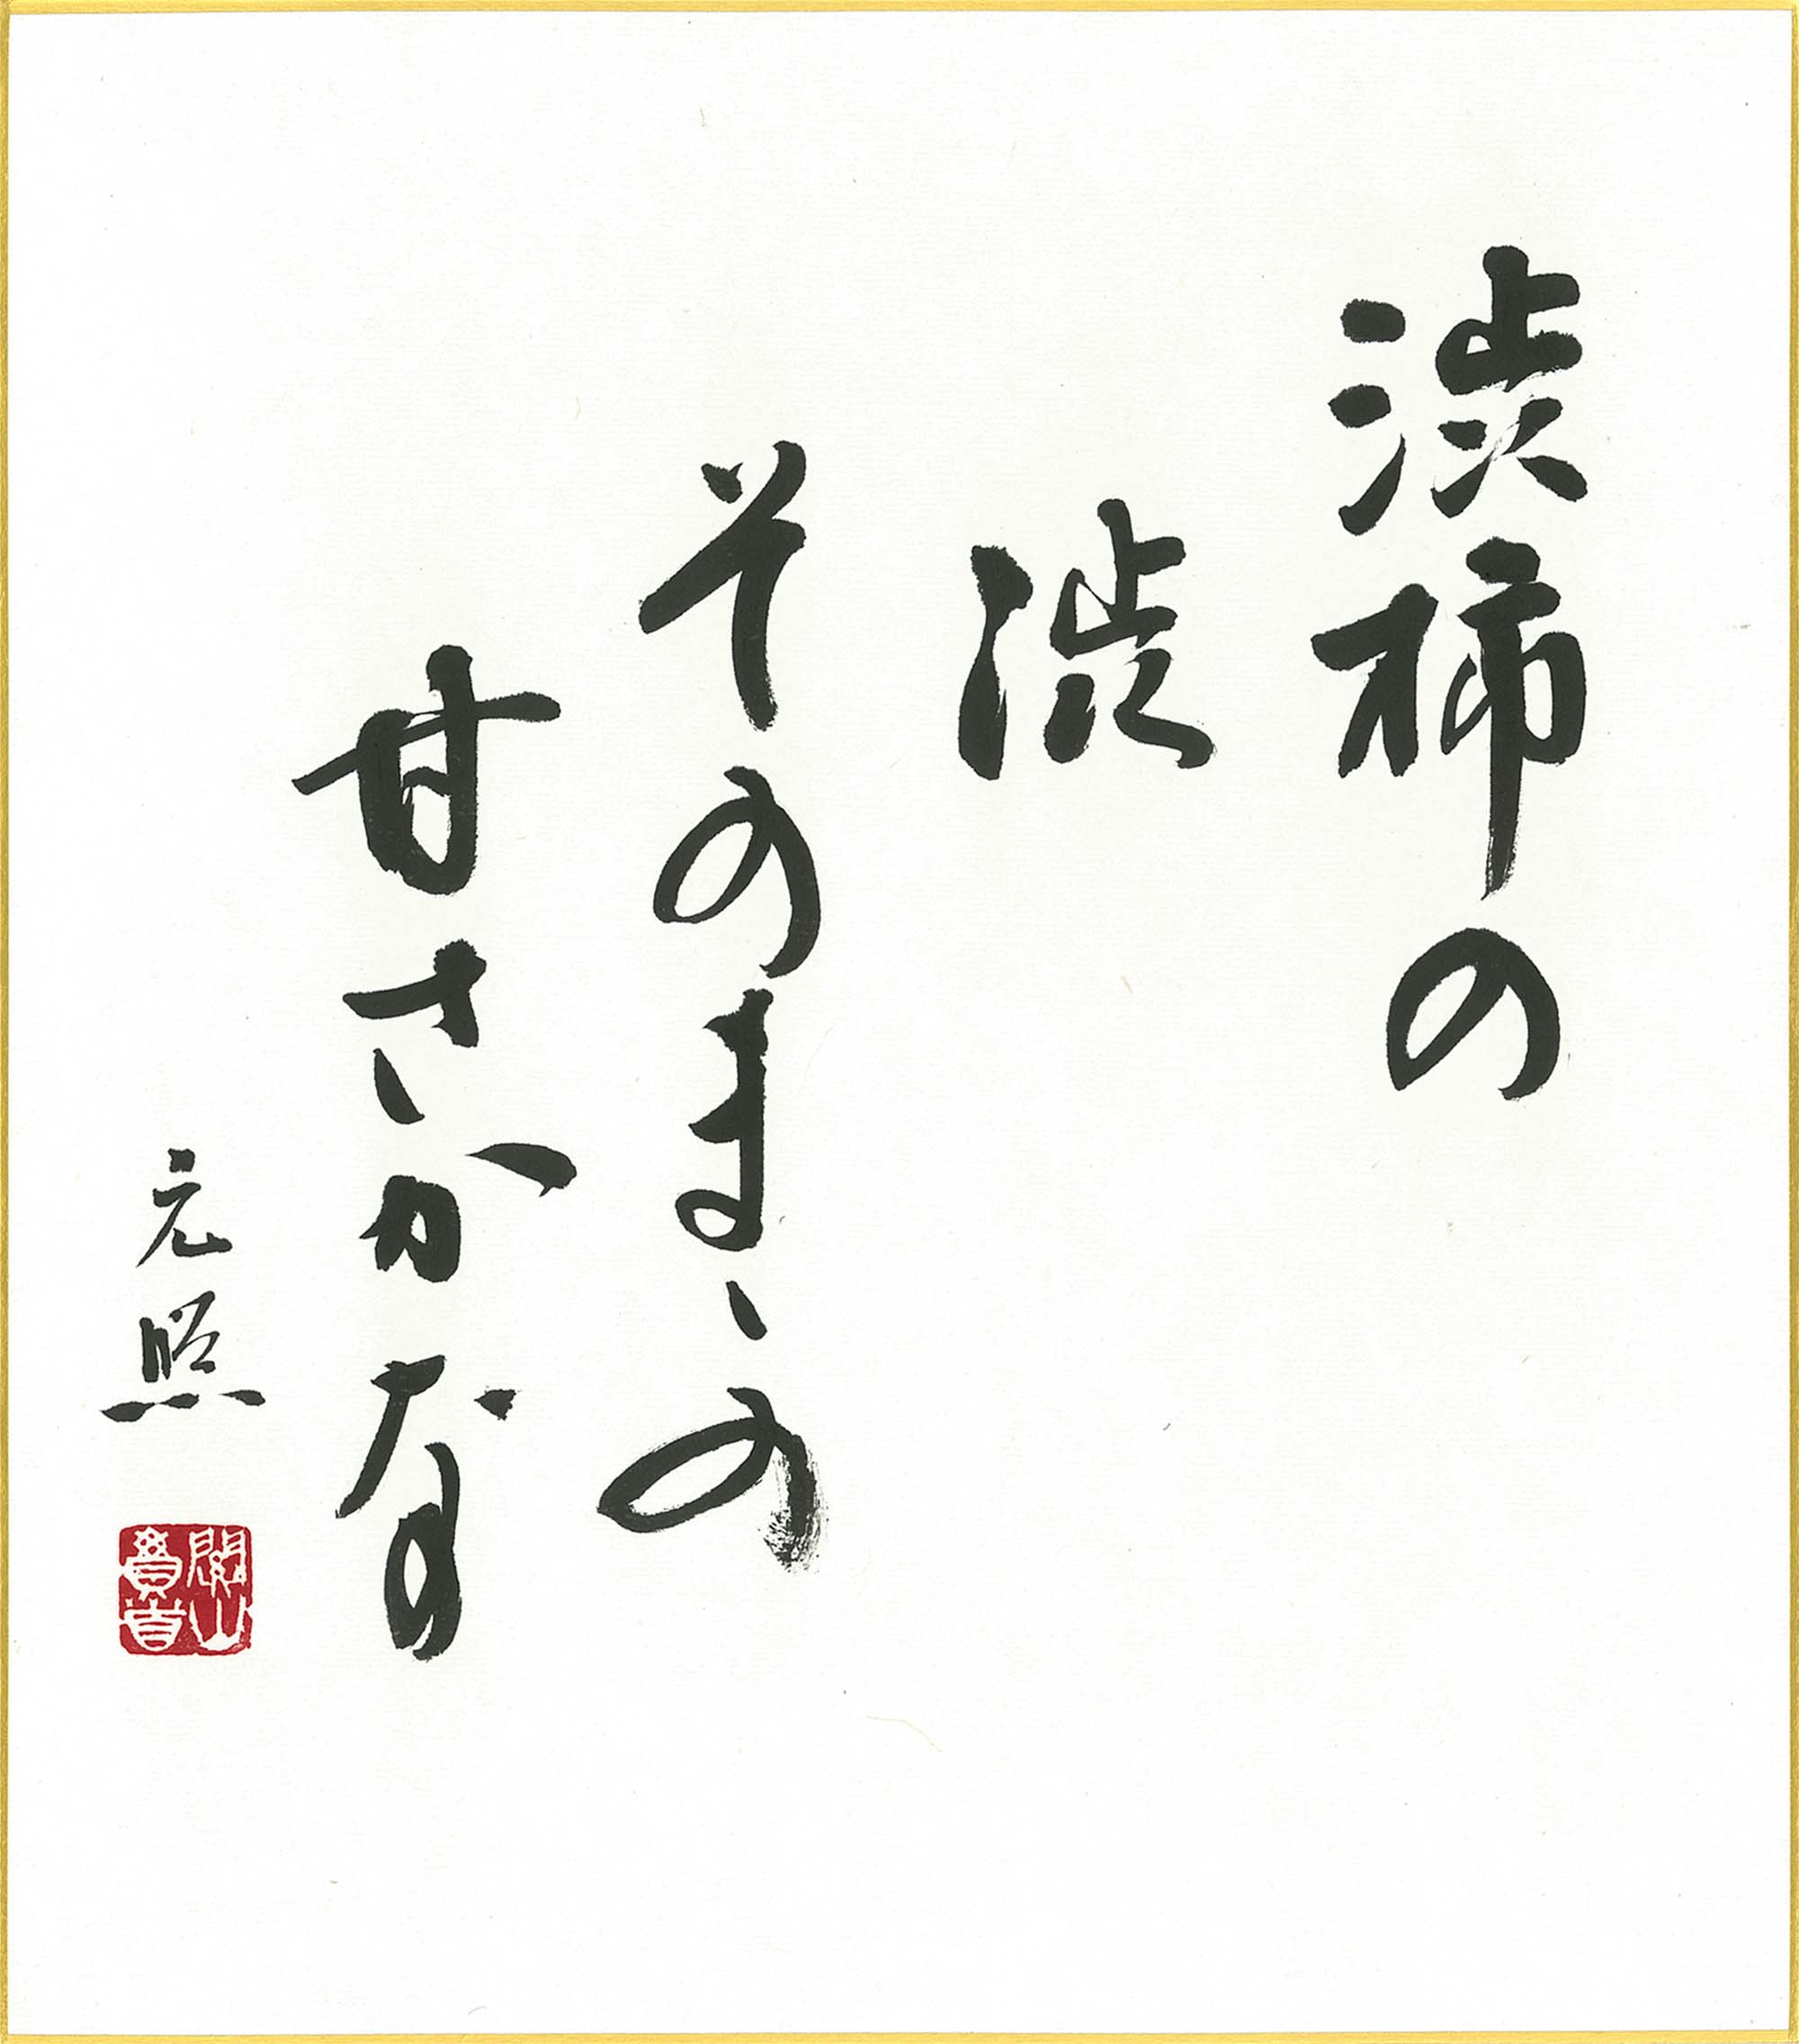 渋柿の
渋
そのまゝの
甘さかな
元照